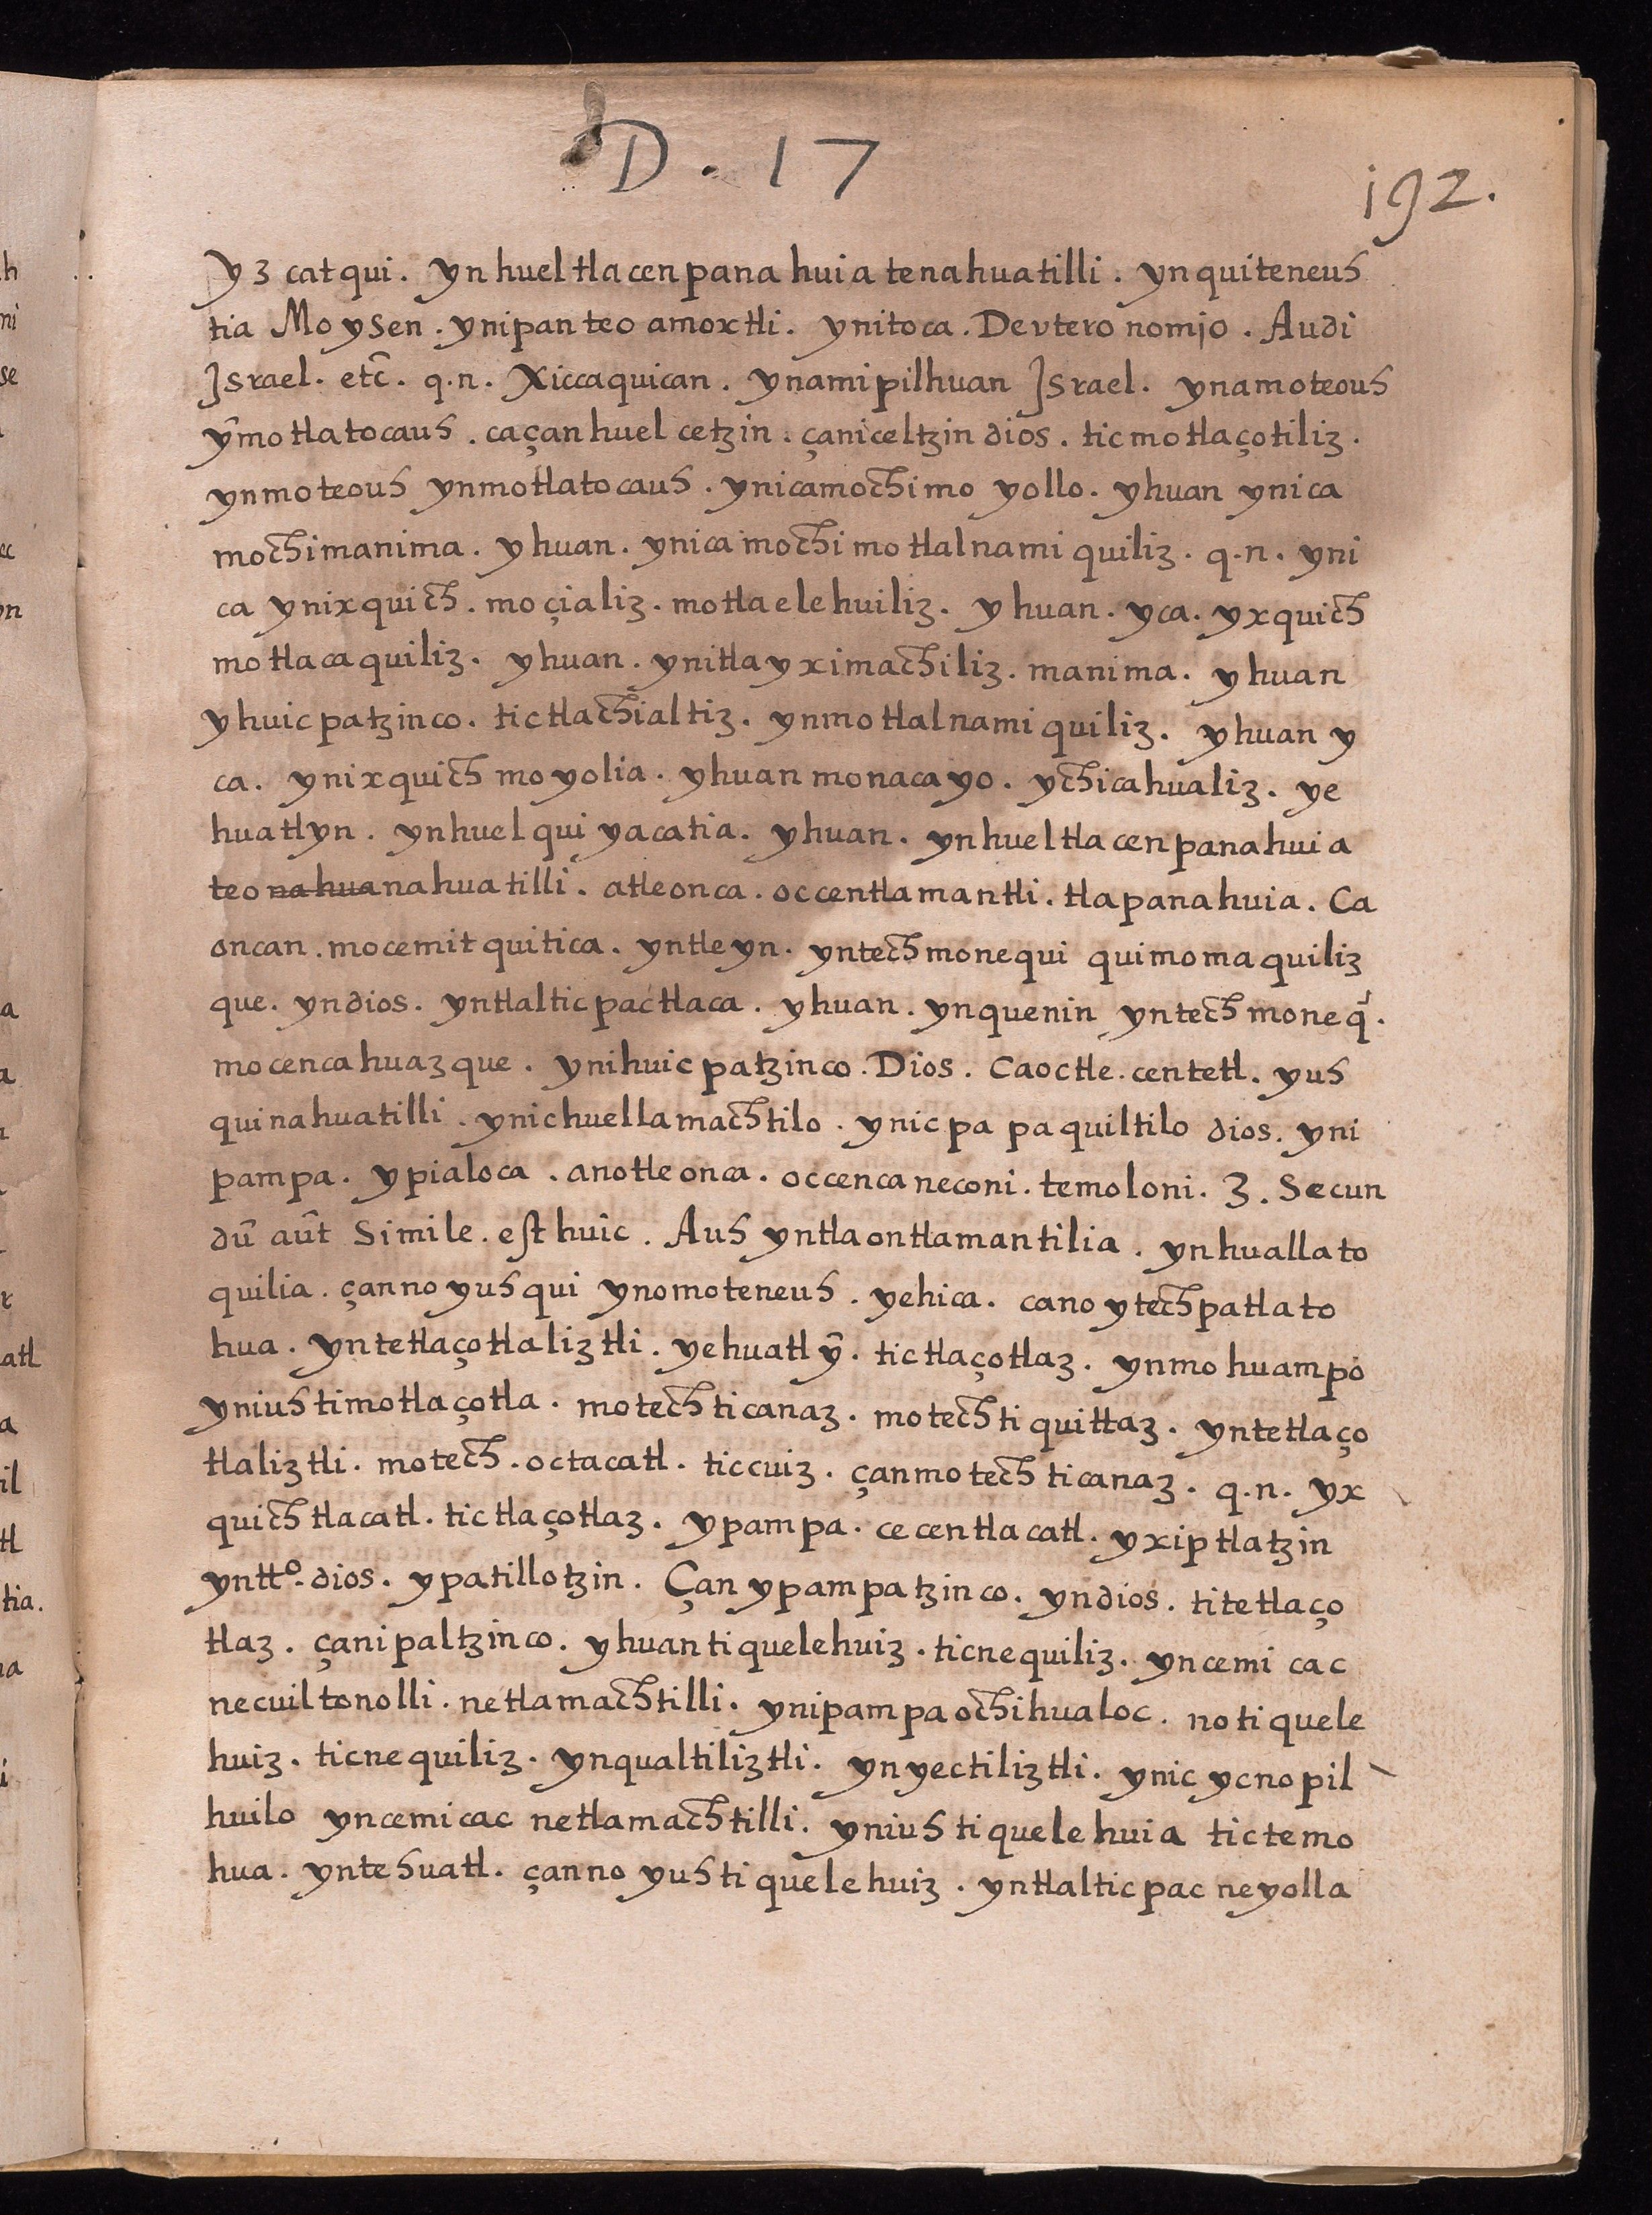 D. 17
192.
yz catqui. yn huel tlacenpanahuia tenahuatilli. yn quiteneuh
tia Moysen. ynipan teoamoxtli. ynitoca. Deuteronomjo. Audi
Jsrael. etc̃. q.n. Xiccaquican. ynamipilhuan Jsrael. ynamoteouh
ỹmotlatocauh. caçanhuel cetzin. çaniceltzin dios. ticmotlaçotiliz.
ynmoteouh ynmotlatocauh. ynicamochi moyollo. yhuan ynica
mochimanima. yhuan. ynica mochi motlalnamiquiliz. q.n. yni
ca ynixquich. moçializ. motlaelehuiliz. yhuan. yca. yxquich
motlacaquiliz. yhuan. ynitlayximachiliz. manima. yhuan
yhuicpatzinco. tictlachialtiz. ynmotlalnamiquiliz. yhuan y
ca. ynixquich moyolia. yhuan monacayo. ychicahualiz. ye
huatlyn. ynhuel quiyacatia. yhuan. ynhueltlacenpanahuia
teonahuanahuatilli. atleonca. occentlamantli. tlapanahuia. Ca
oncan. mocemitquitica. yntleyn. yntech monequi quimomaquiliz
que. yndios. yntlalticpactlaca. yhuan. ynquenin yntech moneq́.
mocencahuazque. ynihuicpatzinco. Dios. Caoctle. centetl. yuh
quinahuatilli. ynichuellamachtilo. ynicpapaquiltilo dios. yni
pampa. ypialoca. anotleonca. occencaneconi. temoloni. 3. Secun
dũ aũt Simile. est huic. Auh yntlaontlamantilia. ynhuallato
quilia. çanno yuhqui ynomoteneuh. yehica. cano ytechpatlato
hua. yntetlaçotlaliztli. yehuatl ỹ. tictlaçotlaz. ynmohuampo
yniuh timotlaçotla. motech ticanaz. motech tiquittaz. yntetlaço
tlaliztli. motech. octacatl. ticcuiz. çanmotech ticanaz. q.n. yx
quich tlacatl. tictlaçotlaz. ypampa. cecentlacatl. yxiptlatzin
yntt.º dios. ypatillotzin. Çan ypampatzinco. yndios. titetlaço
tlaz. çanipaltzinco. yhuan tiquelehuiz. ticnequiliz. yncemicac
necuiltonolli. netlamachtilli. ynipampa ochihualoc. no tiquele
huiz. ticnequiliz. ynqualtiliztli. ynyectiliztli. ynic ycnopil
huilo yncemicac netlamachtilli. yniuh tiquelehuia tictemo
hua. yntehuatl. çanno yuh tiquelehuiz. yntlalticpac neyolla